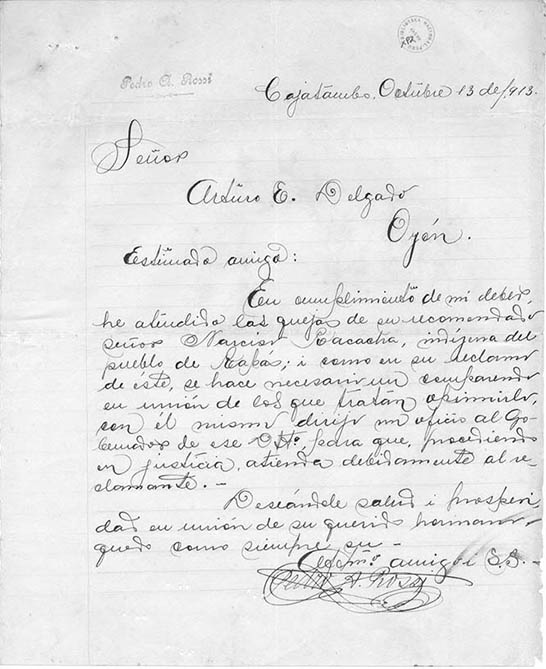 BIBLIOTECA NACIONAL
Pedro A. Rossi
Cajatambo, Octubre 13 de 1,913.
Señor
Arturo E. Delgado
Oyón.
Estimado amigo:
En cumplimiento de mi deber,
he atendido las quejas de su recomendado
señor Narciso Cacacha, indíjena del
pueblo de Rapás; i como en su reclamo
de éste, se hace necesario un comparendo
en unión de los que tratan oprimirlo,
con él mismo dirijo un oficio al Go-
bernador de ese Dtto, para que, procediendo
en justicia, atienda debidamente al re-
clamante. -
Deseándole salud i prosperi-
dad en unión de su querido hermano
quedo como siempre su -
amigo i S.S. -
Pedro A. Rossi